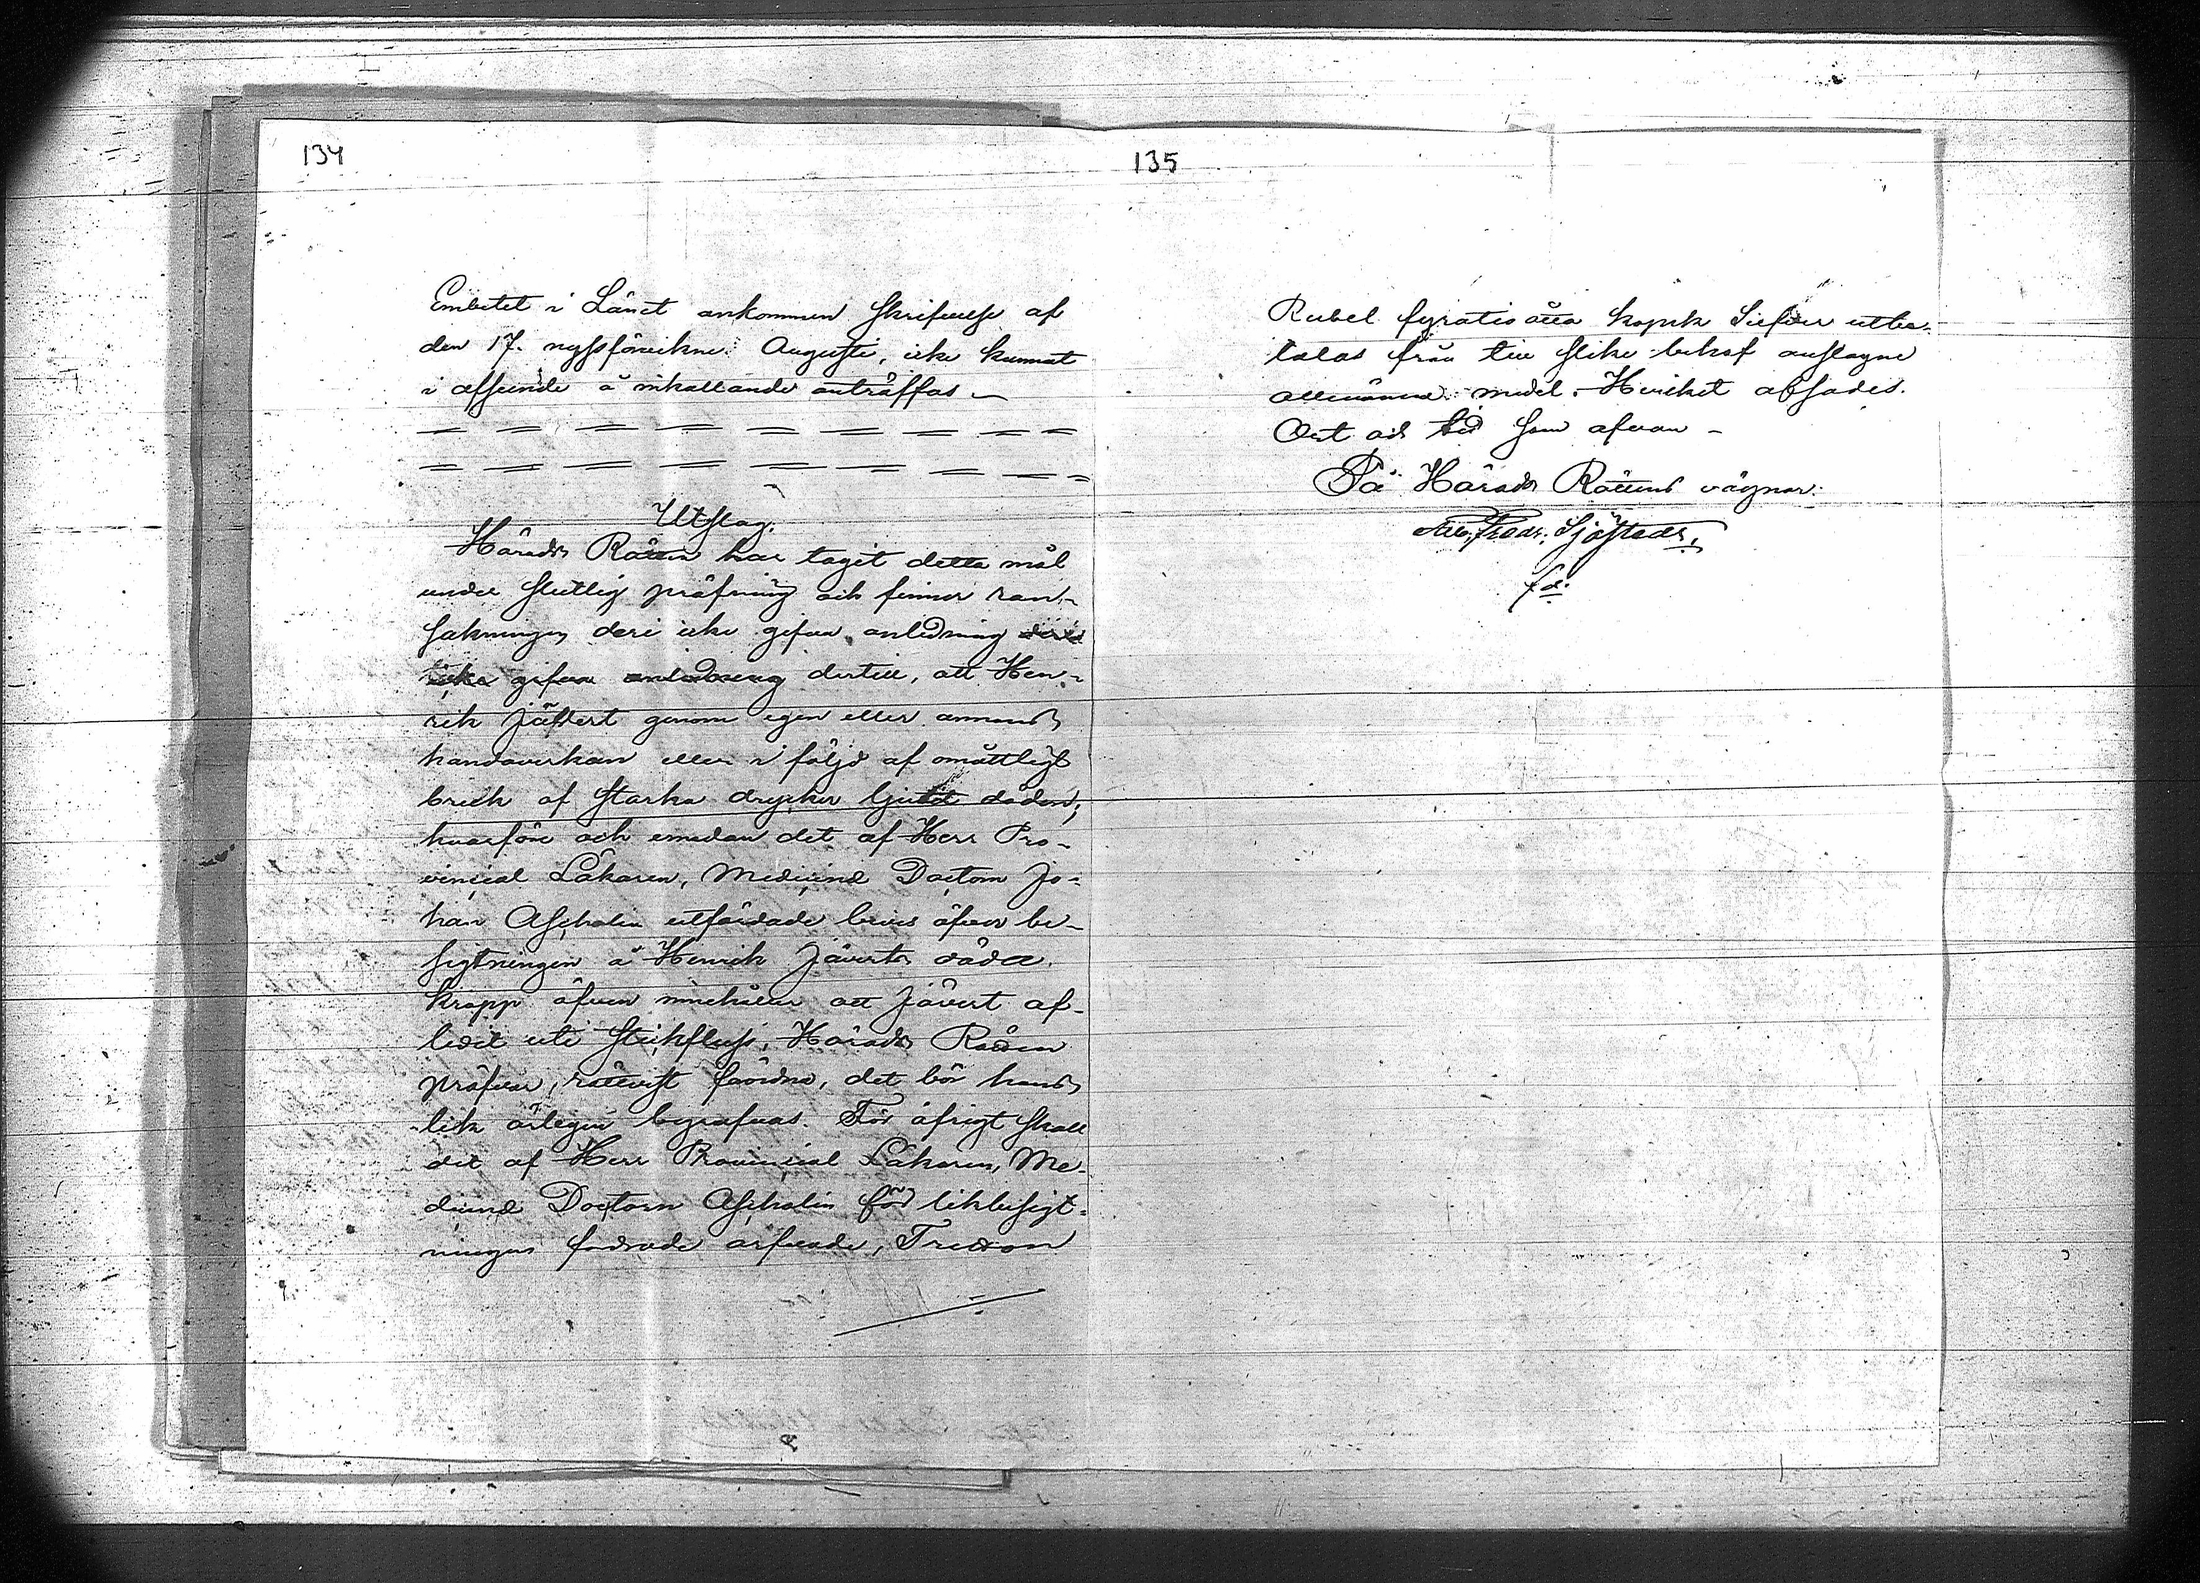 134
Embetet i Länet ankommen skrifvelse af
den 17. nyssförvikne Augusti, icke kunnat
i afseende å inkallande anträffas.
Utslag.
Härads Rätten har tagit detta mål
under slutlig pröfning och finner ran-
sakningen deri icke gifva anledning
icke gifva anledning dertill, att Hen-
rik Jäfvert genom egen eller annans
handaverkan eller i följd af omåttligt
bruk af starka drycker ljutit döden;
hvarföre och emedan det af Herr Pro-
vincial Läkaren, Medicinæ Doctorn Jo-
han Ascholin utfärdade bevis öfver be-
sigtningen å Henrik Jäverts döda
kropp äfven innehåller att Jävert af-
lidit uti Stickfluss, Härads Rätten
pröfvar, rättvist förordna, det bör hans
lik ärligen begrafvas. För öfrigt skall
det af Herr Provincial Läkaren, Me-
dicinæ Doctorn Ascholin för likbesigt-
ningen fordrade arfvode, Tretton
135
Rubel fyratioåtta kopek Silfver utbe-
talas från till slike behof anslagne
allmänna medel. Hvilket afsades.
Ort och tid som ofvan -
På Härads Rättens vägnar:
Sjöstedt.